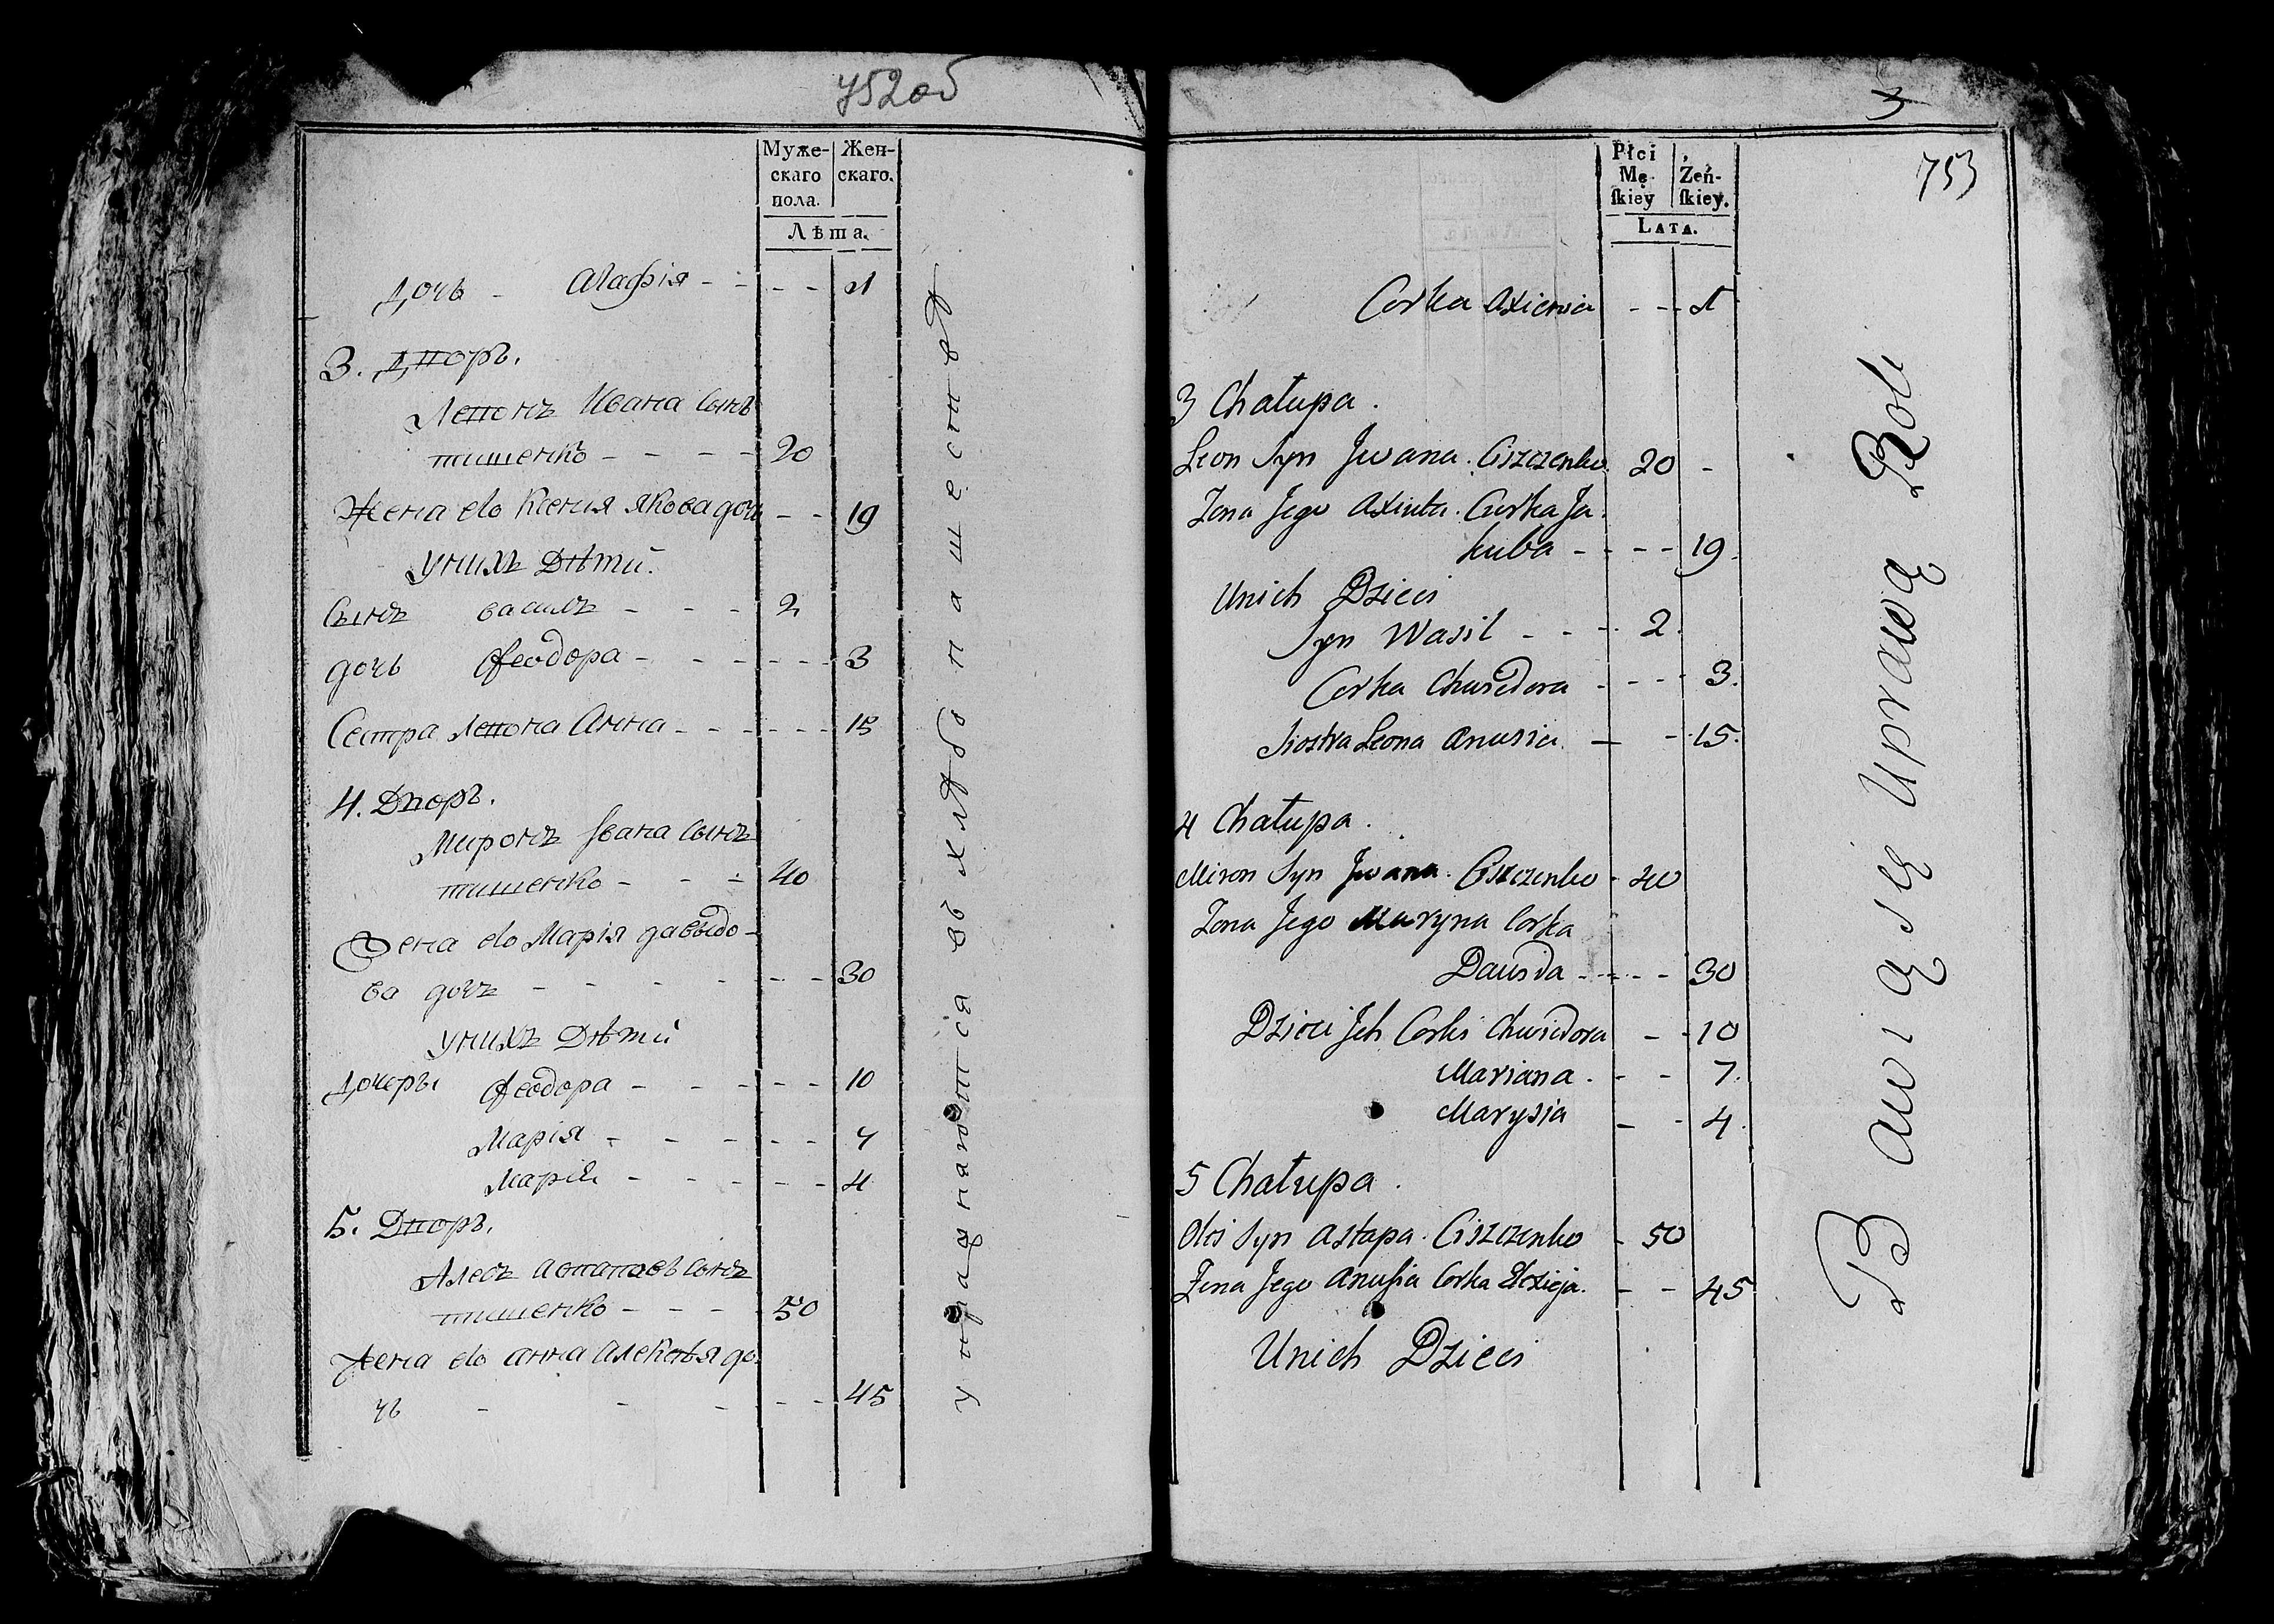 752об
Муже-
скаго
пола.
Жен-
скаго.
Лѣта.
Дочь - Агафія - - - - 1
3. Дворъ.
Левонъ Ивана сынъ
тишенко - - - - 20
Жена его Ксения Якова дочь - - 19
У нихъ Дѣти.
Сынъ василъ - - - 2
дочь Феодора - - - - - - 3
Сестра Левона Анна - - - - - - 15
4. Дворъ.
Миронъ Ивана сынъ
тишенко - - - 40
Жена его Марія давыдо-
ва дочъ - - - - - - 30
У нихъ Дѣти
Дочеры Феодора - - - - - 10
Марія - - - - - - 7
Марія - - - - - - 4
5. Дворъ.
Алесъ Астаповъ сынъ
тишенко - - - - 50
Жена его анна алексѣя до-
чь - - - - - 45
упражняются въ хлѣбопашествѣ
3
753
Płci
Mę-
ſkiey
Żeń-
ſkiey.
Lata.
Corka Axienia - - - 1
3 Chałupa.
Leon Syn Jwana. Ciszczenko. 20 -
Zona Jego Axiuta. Curka Ja-
kuba - - - - 19.
Unich Dzieci
Syn Wasil - - - 2.
Corka Chwiedora - - - - 3.
Siostra Leona Anusia. - - 15.
4 Chałupa.
Miron Syn Jwana. Ciszczenko - 40
Zona Jego Maryna Corka
Dawida - - - - 30
Dzieci Jch Corki Chwiedora - - 10
Mariana. - - 7.
Marysia - - 4.
5 Chałupa.
Olis Syn Astapa. Ciszczenko - 50
Zona Jego Anusia Corka Elexieja. - - 45
Unich Dzieci
Bawią się Uprawą Roli